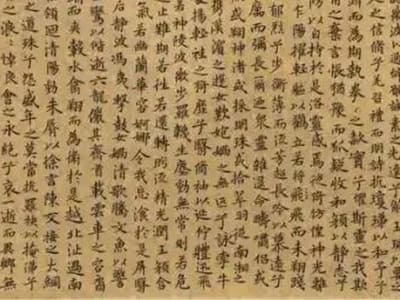 之信脩兮羌習禮而明詩抗瓊珶以和予兮
淵而為期執拳拳之款實兮懼斯靈之我欺
甫之棄言悵猶豫而狐疑收和顏以靜志兮
以自持於是洛靈感焉徙倚彷徨神光離
乍陽擢輕軀以鶴立若將飛而未翔踐
郁烈兮步蘅薄而流芳超長吟以慕遠兮
厲而彌長爾迺眾靈雜遝命疇嘯侶或
或翔神渚或採明珠或拾翠羽從南湘之
攜漢濱之遊女歎匏媧之無匹兮詠牽牛
揚輕袿之猗靡兮翳脩袖以延佇體迅飛
若神陵波微步羅襪生塵動無常則若危
難期若往若還轉眄流精光潤玉顏含
氣若幽蘭華容婀娜令我忘飡於是屏翳
后靜波馮夷擊鼓女媧清歌騰文魚以警
鸞以偕逝六龍儼其齊首載雲車之容裔
而夾轂水禽翔而為衛於是越北沚過南
領迴清陽動朱唇以徐言陳交接之大綱
之道殊兮怨盛年之莫當抗羅袂以掩涕兮
之浪浪悼良會之永絕兮哀一逝而異鄉無